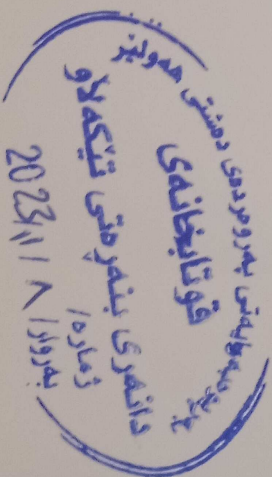 بەڕێوەبەرایەتی پەروەردەی دەشتی هەولێر
قوتابخانەی
دانەری بنەڕەتی تێکەڵاو
ژمارە/
بەروار/ ٨ / 2023/١١